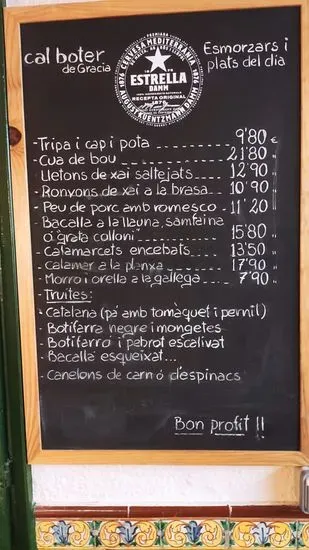 cal boter
de Gracia
PREMIUM
CERVESA MEDITERRÀNIA
1876
ESTRELLA
DAMM
RECEPTA ORIGINAL
1876
AUGUST KUENTZMANN DAMM
Esmorzars i
plats del dia
-Tripa i cap i pota 9'80 €
-Cua de bou 21'80 "
-Lletons de xai saltejats 12'90 "
-Ronyons de xai a la brasa 10'90 "
-Peu de porc amb romesco 11'20 "
-Bacallà a la llauna, samfaina
o "grata colloni" 15'80 "
-Calamarcets encebats 13'50 "
-Calamar a la planxa 17'90 "
-Morro i orella a la gallega 7'90 "
-Truites:
-Catalana (pà amb tomàquet i pernil)
-Botifarra negre i mongetes
-Botifarró i pebrot escalivat
-Bacallà esqueixat...
-Canelons de carn ó d'espinacs
Bon profit !!